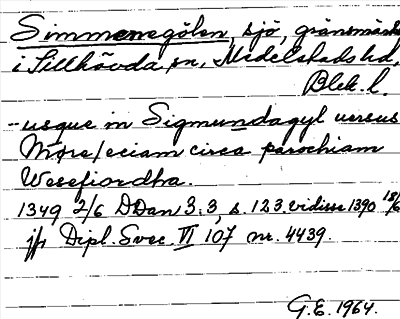 Simmenegölen, sjö, gränsmärke
i Sillhövda sn, Medelstads hd,
Blek. l.
- usque in Sigmundagyl uersus
Møre/eciam circa parochiam
Wesefiordha.
1349 2/6 DDan 3:3, s. 123. vidisse 1390 18/6
jfr Dipl. Svec. VI 107 nr. 4439.
G.E. 1964.